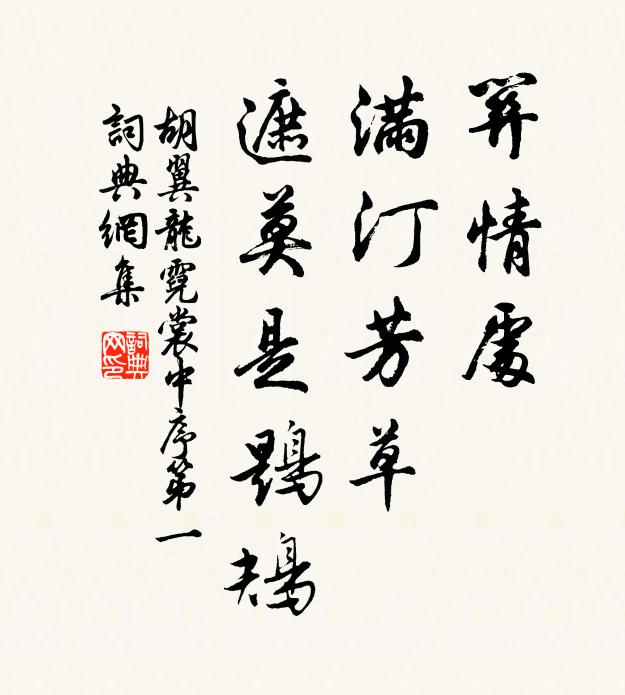 筭情處
滿汀芳草
遮莫是鶗鴂
胡翼龍霓裳中序第一
詞典網集
詞典
网印